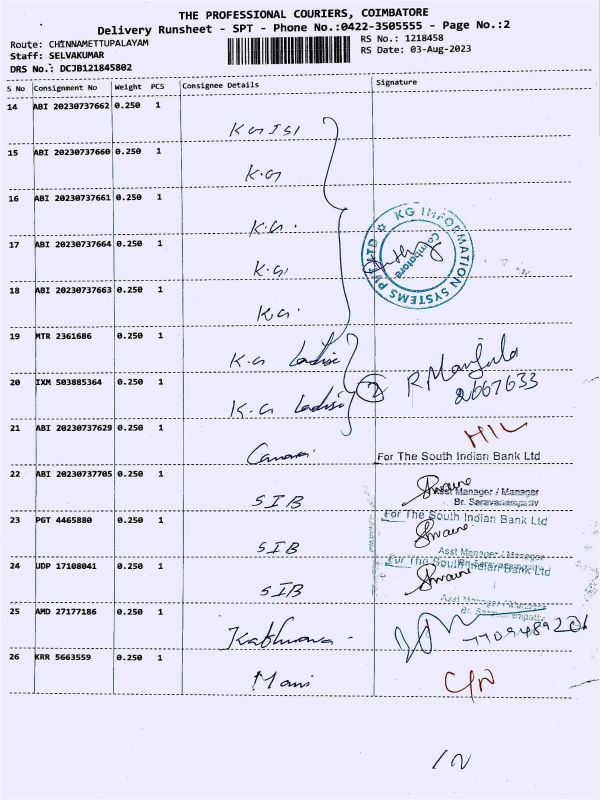 THE PROFESSIONAL COURIERS, COIMBATORE
Delivery Runsheet - SPT - Phone No.:0422-3505555 - Page No.:2
Route: CHINNAMETTUPALAYAM
RS No.: 1218458
Staff: SELVAKUMAR
RS Date: 03-Aug-2023
DRS No.: DCJB121845802
S No Consignment No Weight PCS Consignee Details Signature
14 ABI 20230737662 0.250 1
KGISI
15 ABI 20230737660 0.250 1
K.G
16 ABI 20230737661 0.250 1
K.G.
17 ABI 20230737664 0.250 1
K.G
KG INFORMATION SYSTEMS PVT LTD
Coimbatore
18 ABI 20230737663 0.250 1
K.G.
19 MTR 2361686 0.250 1
K.G
20 IXM 503885364 0.250 1
K.G
2
R Manjula
2667633
21 ABI 20230737629 0.250 1
Canara
For The South Indian Bank Ltd
22 ABI 20230737705 0.250 1
SIB
Asst Manager / Manager
Br. Saravanampatty
23 PGT 4465880 0.250 1
SIB
For The South Indian Bank Ltd
Asst Manager / Manager
Br. Saravanampatty
24 UDP 17108041 0.250 1
SIB
For The South Indian Bank Ltd
Asst Manager / Manager
Br. Saravanampatty
25 AMD 27177186 0.250 1
26 KRR 5663559 0.250 1
Mani
C/N